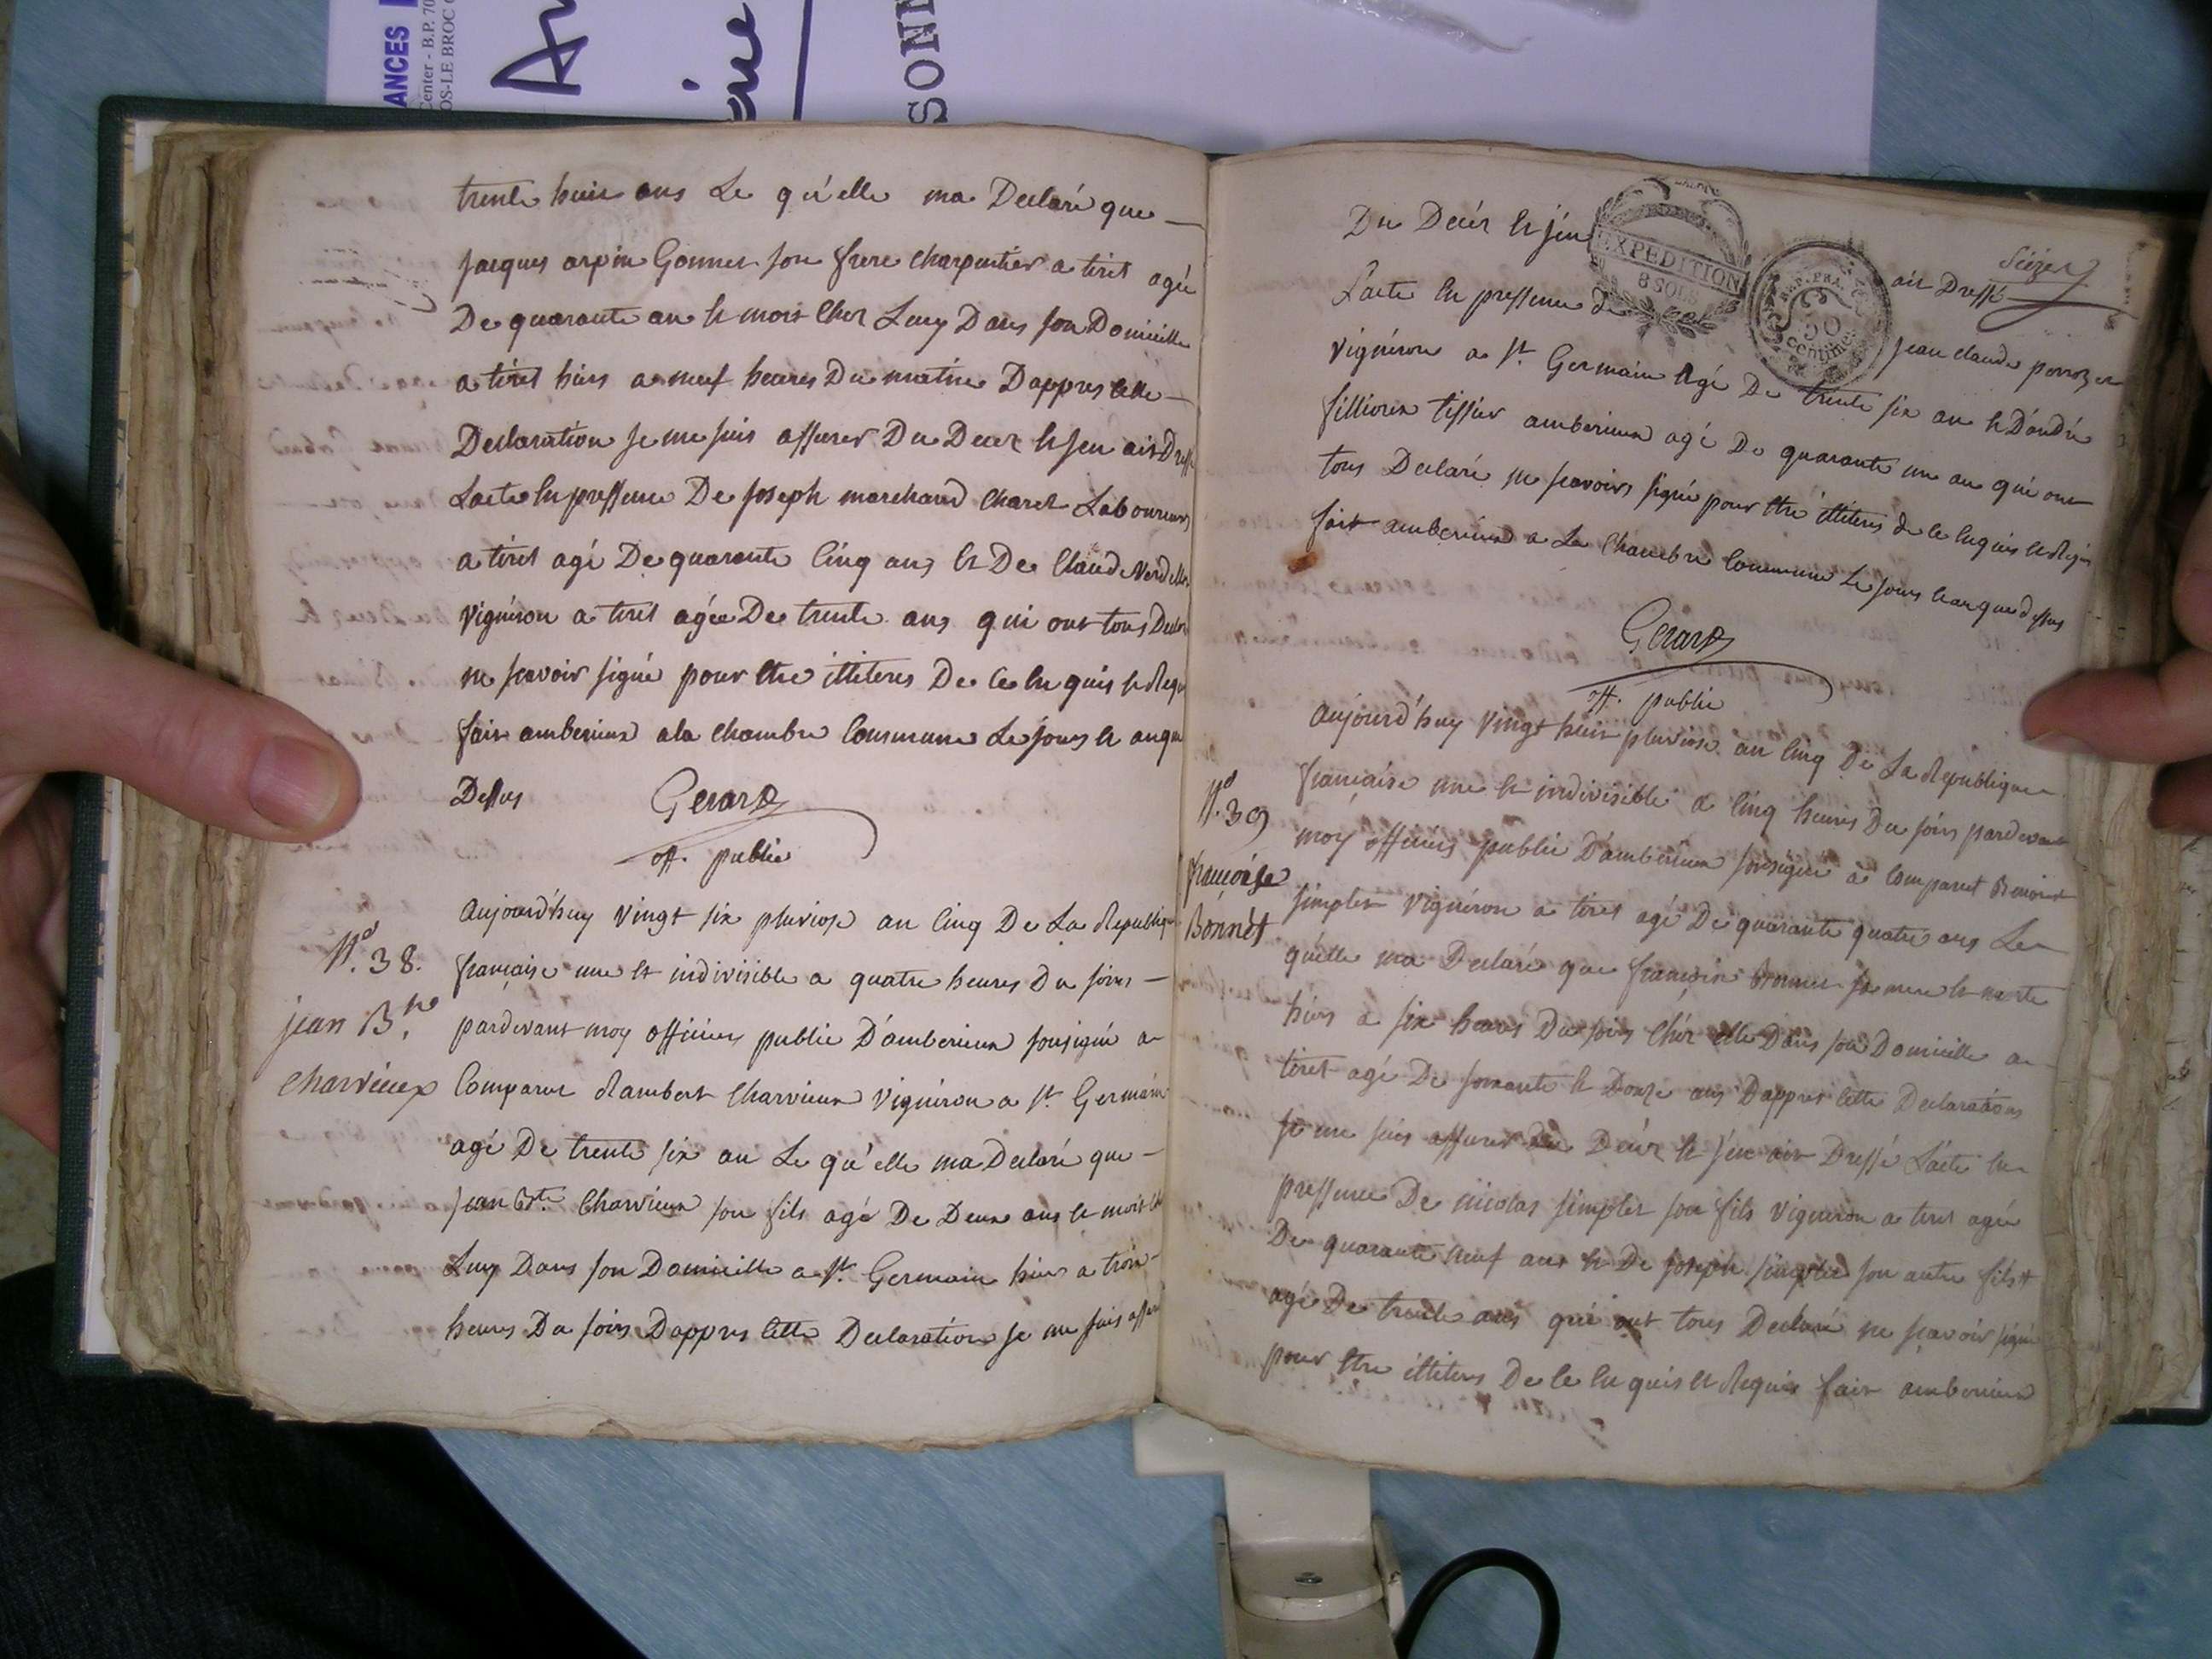 ANCES
Center - B.P. 70
OS-LE BROC C
SONN
trente huit ans Le qu'elle ma Declaré que —
jacques arpin Gonnet son frere charpentier a tiret agé
De quarante an et mort chez Luy Dans son Domicille
a tiret hiers a neuf heures Du matin Dappres cette —
Declaration je me suis assurer Du Decez et jen ait Dressé
Lacte en pressence De joseph marchand charet Laboureurs
a tiret agé De quarante cinq ans et De Claude Verdellet
Vigniron a tiret agée De trente ans qui ont tous Declaré
ne scavoir signé pour etre illiteres De ce en quis et Requis
fait amberieux a la chambre commune Le jours et an que
Dessus
Gerard
off. public
N.o 38.
jean B.te
charvieux
Aujourd'huy vingt six pluviose an cinq De La Republique
française une et indivisible a quatre heures Du soirs —
pardevant moy officiers public D'amberieux sousigné a
Comparut Rambert Charvieux Vigniron a St. Germain
agé De trente six an Le qu'elle ma Declaré que —
jean Bte. Charvieux son fils agé De Deux ans et mort chez
Luy Dans son Domicille a St. Germain hiers a trois
heures Du soirs Dappres cette Declaration je me suis assurer
Seize
EXPEDITION
8 SOLS
REP. FRA.
50
centimes
Du Decez et jen ait Dressé
Lacte en pressence de jean claude perrozet
Vigniron a St. Germain agé De trente six an et D'andré
fillioux tissier amberieux agé De quarante un an qui ont
tous Declaré ne scavoirs signé pour etre illiteres de ce enquis et Requis
fait amberieux a La Chambre commune Le jours et an que dessus
Gerard
off. public
N.o 39
françoise
Bonnet
Aujourd'huy vingt huit pluviose an cinq De La Republique
française une et indivisible a cinq heures Du soirs pardevant
moy officiers public D'amberieux sousigné a comparut Benoist
simplet Vigniron a tiret agé De quarante quatre ans Le
qu'elle ma Declaré que françoise Bonnet sa mere et morte
hiers a six heures Du soirs chéz elle Dans son Domicille a
tiret agé De soixante et Douze ans Dappres cette Declarations
je me suis assurer Du Decéz et jén ait Dressé Lacte en
pressence De nicolas simplet son fils Vigniron a tiret agée
De quarante neuf ans et De joseph simplet son autre fils
agé De trente ans qui ont tous Declaré ne scavoir signé
pour etre illiteres De ce en quis et Requis fait amberieux